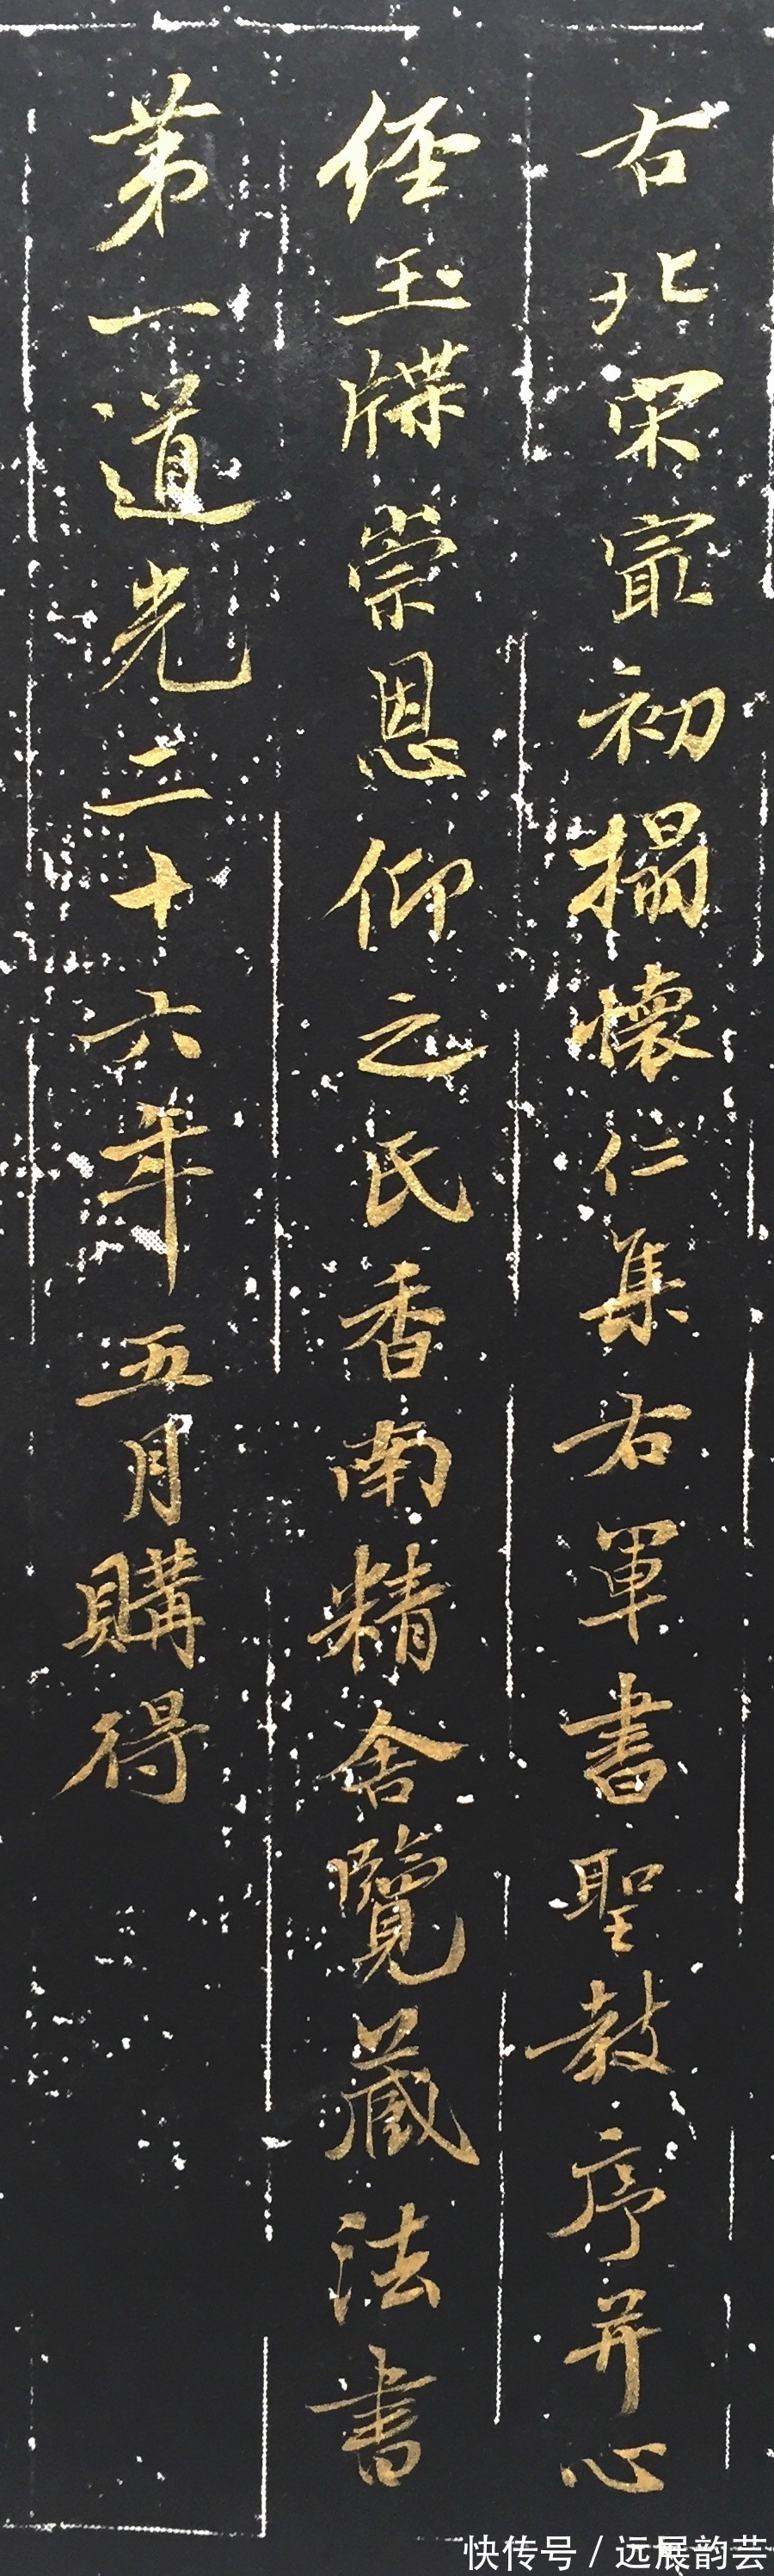 右北宋冣初搨懷仁集右軍書聖教序并心
經玉牒崇恩仰之氏香南精舍覽藏法書
第一道光二十六年五月購得
快传号 / 远展韵芸